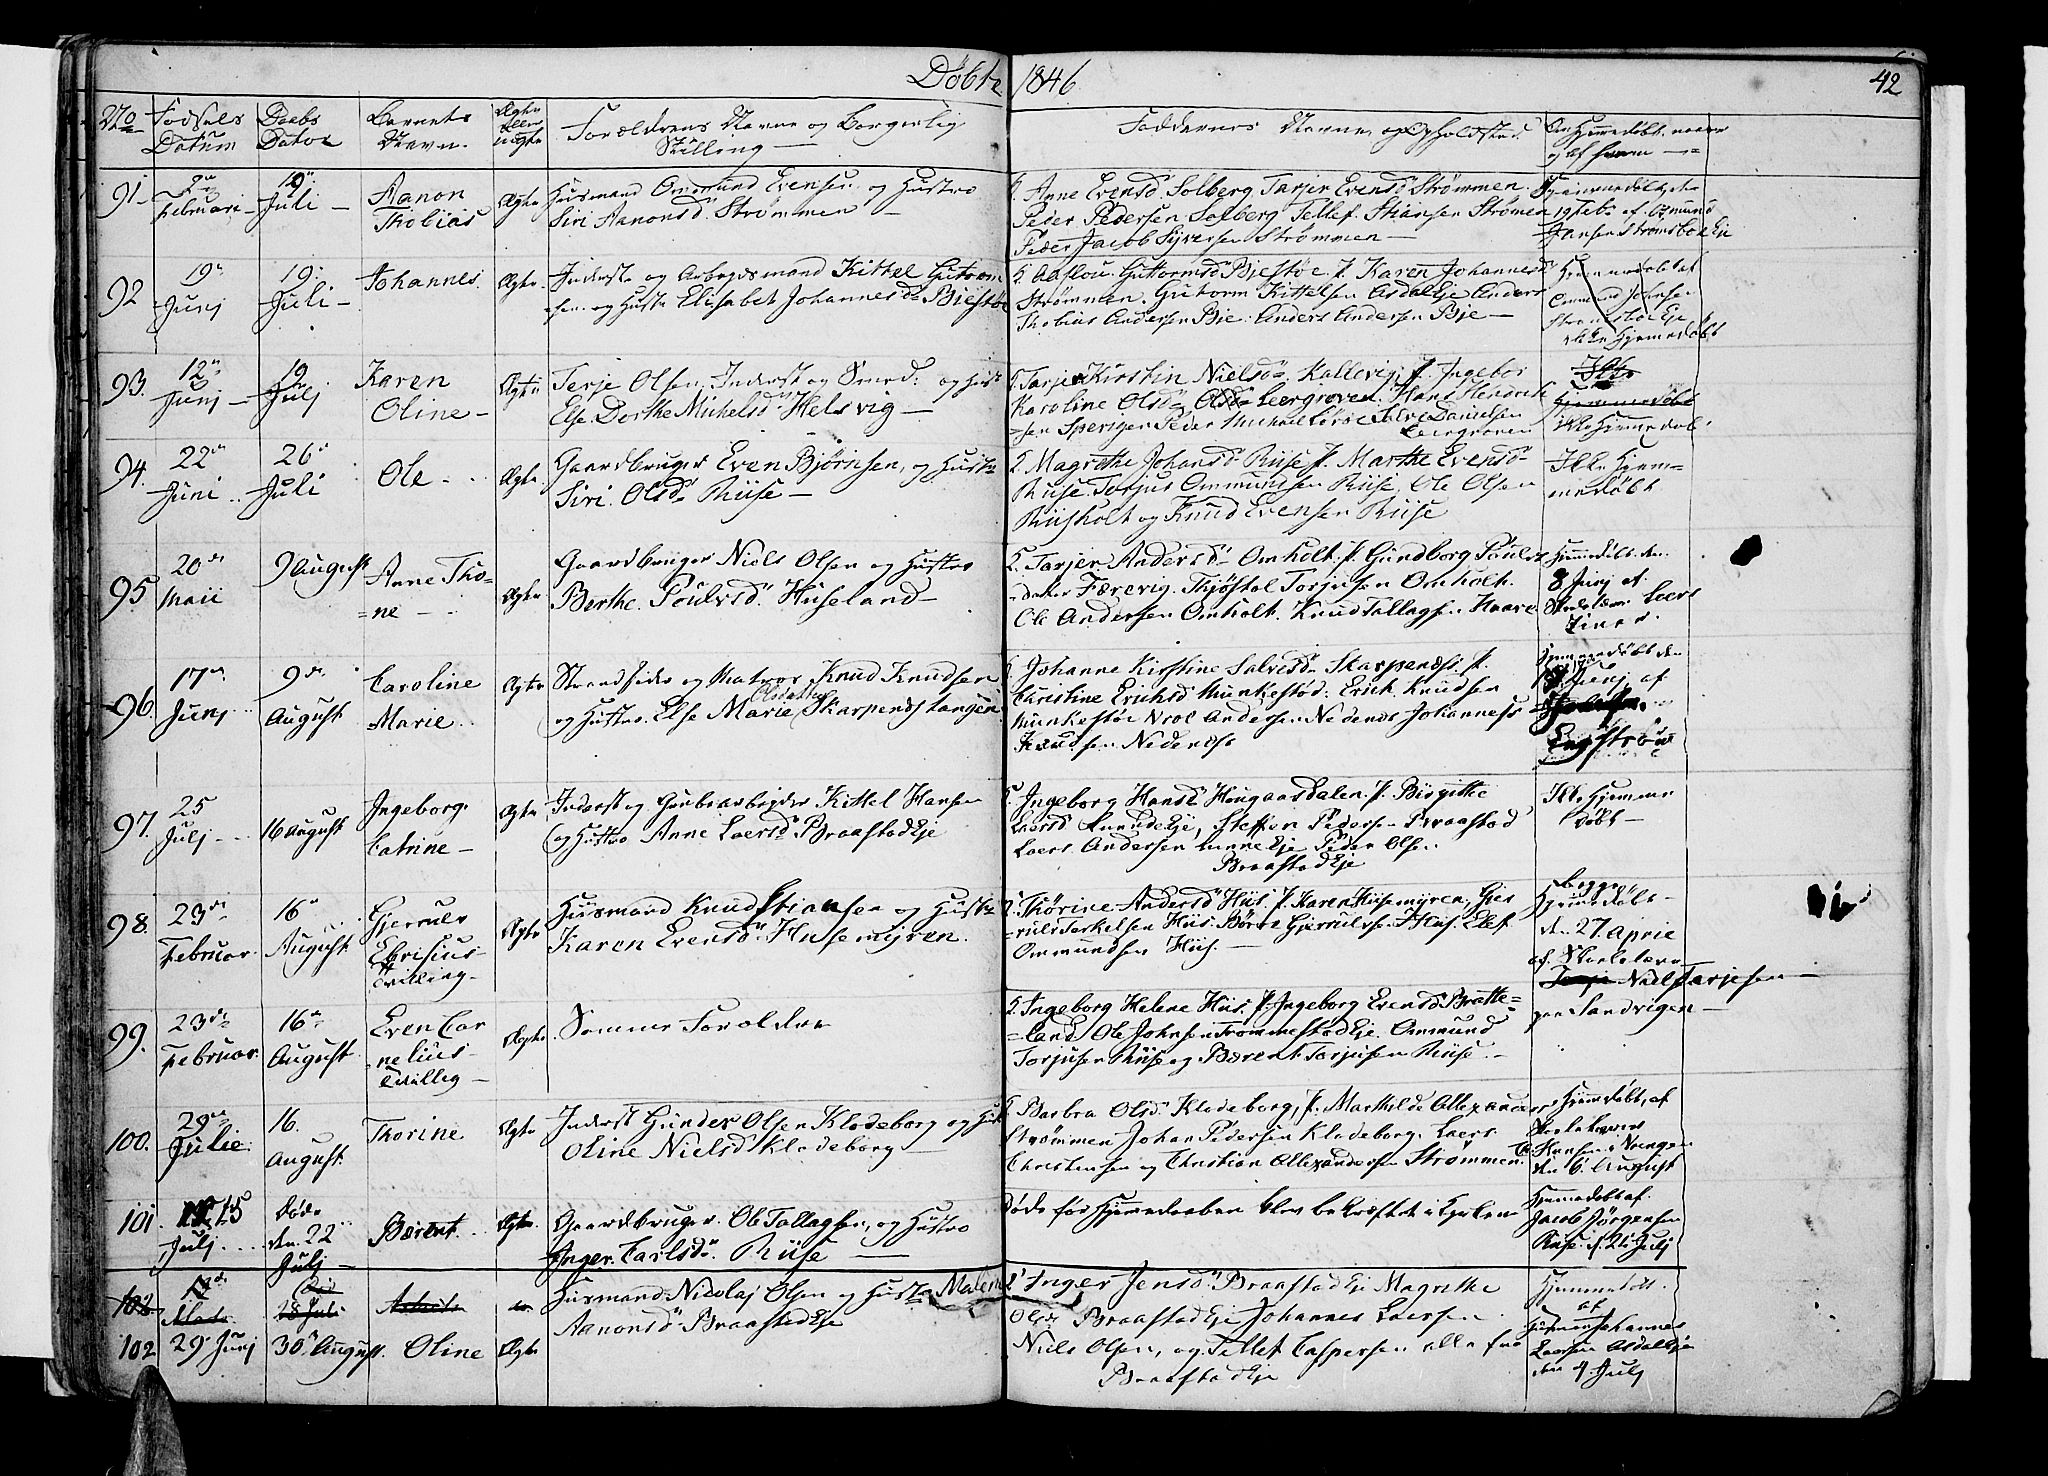 Døbte 1846
42
No
Fødsels Datum
Daabs Datoe
Barnets Navn
Ægte eller uægte
Forældrens Navne og Borgerlig Stilling
Faddernes Navne og Opholdsted
Om Hjemmedøbt, naar og af hvem
91
2den Februari
19n Juli
Aanon Thobias
Ægte
Husmand Ommund Evensen og Hustro
Siri Aanonsd. Strømmen
Anne Evensd. Solberg Tarjer Evensd. Strømmen
Peder Pedersen Solberg Tellef Stiansen Strømen
Peder Jacob Syversen Strømmen
19 Feb. af Omund
Jansen Strømsboe Eje
92
19n Junj
19 Juli
Johannes
Ægte
Inderste og Arbejdsmand Kittel Gutrom
sen og Hustr Elisabet Johannesd. Bjestøe
Aaslou Guttormsd. Bjestøe J. Karen Johannesd.
Strømmen Guttorm Kittelsen Asdal Eje Anders
Thobias Andersen Bie Anders Andersen Bje
Hjemmedøbt af
Ommund Johnsen
Strømsboe Eje
ikke Hjemedøbt
93
12n Junj
19 Julj
Karen Oline
Ægte
Terje Olsen Inderst og Smed og Hust
Else Dorthe Michelsd. Helsvig
Tarjer Kirstin Nielsd. Kallevig J. Ingebor
Karoline Olsd. Leergroven Hans Hendrik
sen Danielsen
Leergroven
Ikke
Hjemmedøbt
ikke Hjemmedøbt
94
22n Juni
26d Juli
Ole
Ægte
Gaardbruger Even Bjørnsen og Hustr
Siri Olsd. Riise
Magrethe Johansd. Riise J. Marthe Evensd.
Riise Torjus Ommundsen Riise Ole Olsen
Riisholt og Knud Evensen Riise
Ikke Hjem-
medøbt
95
20de Maii
9 August
Anne Tho=
=ne
Ægte
Gaardbruger Niels Olsen og Hustro
Berthe Poulsd. Huseland
Tarjer Andersd. Omholt J. Gundborg Pouls
datter Færevig Thjøstol Torjusen Omholt
Ole Andersen Omholt Knud Tallagsen Haave
Hjemmedøbt den
8 Junj af
Skolelærer Laers
96
17n Junj
9de August
Caroline Marie
Ægte
Strandsider og Matros Knud Knudsen
og Hustro Else Marie Olsdatter Skarpenes Langen
Johanne Kirstine Salvesd. Skarpenæs J.
Christine Erichsd. Munkestød Erich Knudsen
Munkestøe Nroe Andersen Nedenes Johanness
Knudsen Nedenæs
Hjemmedøbt den
Junj af
Engström
97
25 Julj
16 August
Ingeborg Catrine
Ægte
Inderst og Grubearbejder Kittel Hansen
og Hustro Anne Laersd. Braastad Eje
Ingeborg Hansd. Hougaasdalen J. Birgitthe
Laersd. Eje, Steffen Pedersen Braastad
Laers Andersen Eje Peder Olsen
Braastad Eje
Ikke Hjemme
døbt
98
23de Februar
16n August
Gjerrulv
Chrisius
Tvilling
Ægte
Husmand Knud Stiansen og Hustr
Karen Evensd. Husemyren
Thorine Andersd. Hiis J. Karen Husemyren, Gjer
rulv Terkelsen Hiis Børre Gjerrulsen Hiis Elef
Ommundsen Hiis
begge
Hjemmedøbt
den 27 Aprie
af Skolelærer
Niels Tarjesen
paa Sandvigen
99
23de Februar
16n August
Even Cor
nelius
Tvilling
Ægte
Samme Foreldre
Ingeborg Helene Hiis J. Ingeborg Evensd. Bratte=
=land Ole Johnsen Trommestad Eje Ommund
Torjusen Riise og Bærent Torjusen Riise
100
29n Julie
16 August
Thorine
Ægte
Inderst Gunder Olsen Klodeborg og Hust
Oline Nielsd. Klodeborg
Barbra Olsd. Klodeborg, J. Mathilde Allexander
Strømmen Johan Pedersen Klodeborg Laers
Christensen og Christian Allexandersen Strømmen
Hjemmedøbt af
Skolelærer
Hansen i Vrengen
den 6 August
101
15 Julj
Døde
den 22
Julj
Bærent
Ægte
Gaardbruger Ole Tallagsen, og Hustro
Inger Carlsd. Riise
Døde før Hjemedaaben blev bekræftet i Kirken
Hjemmedøbt af
Jacob Jörgensen
Riise d. 21 Julj
102
18 Juli
Husmand Nicolaj Olsen og Hustr Malene
Aanonsd. Braastad Eje
102
29 Junj
30n August
Oline
Ægte
Inger Jensd. Braastad Eje Magrethe
Olsd. Braastad Eje Johannes Laersen
Niels Olsen, og Tellef Caspersen alle fra
Braastad Eje
Hjemmedøbt
af
Husman Johannes
Laersen Asdal Eje
den 4 Julj